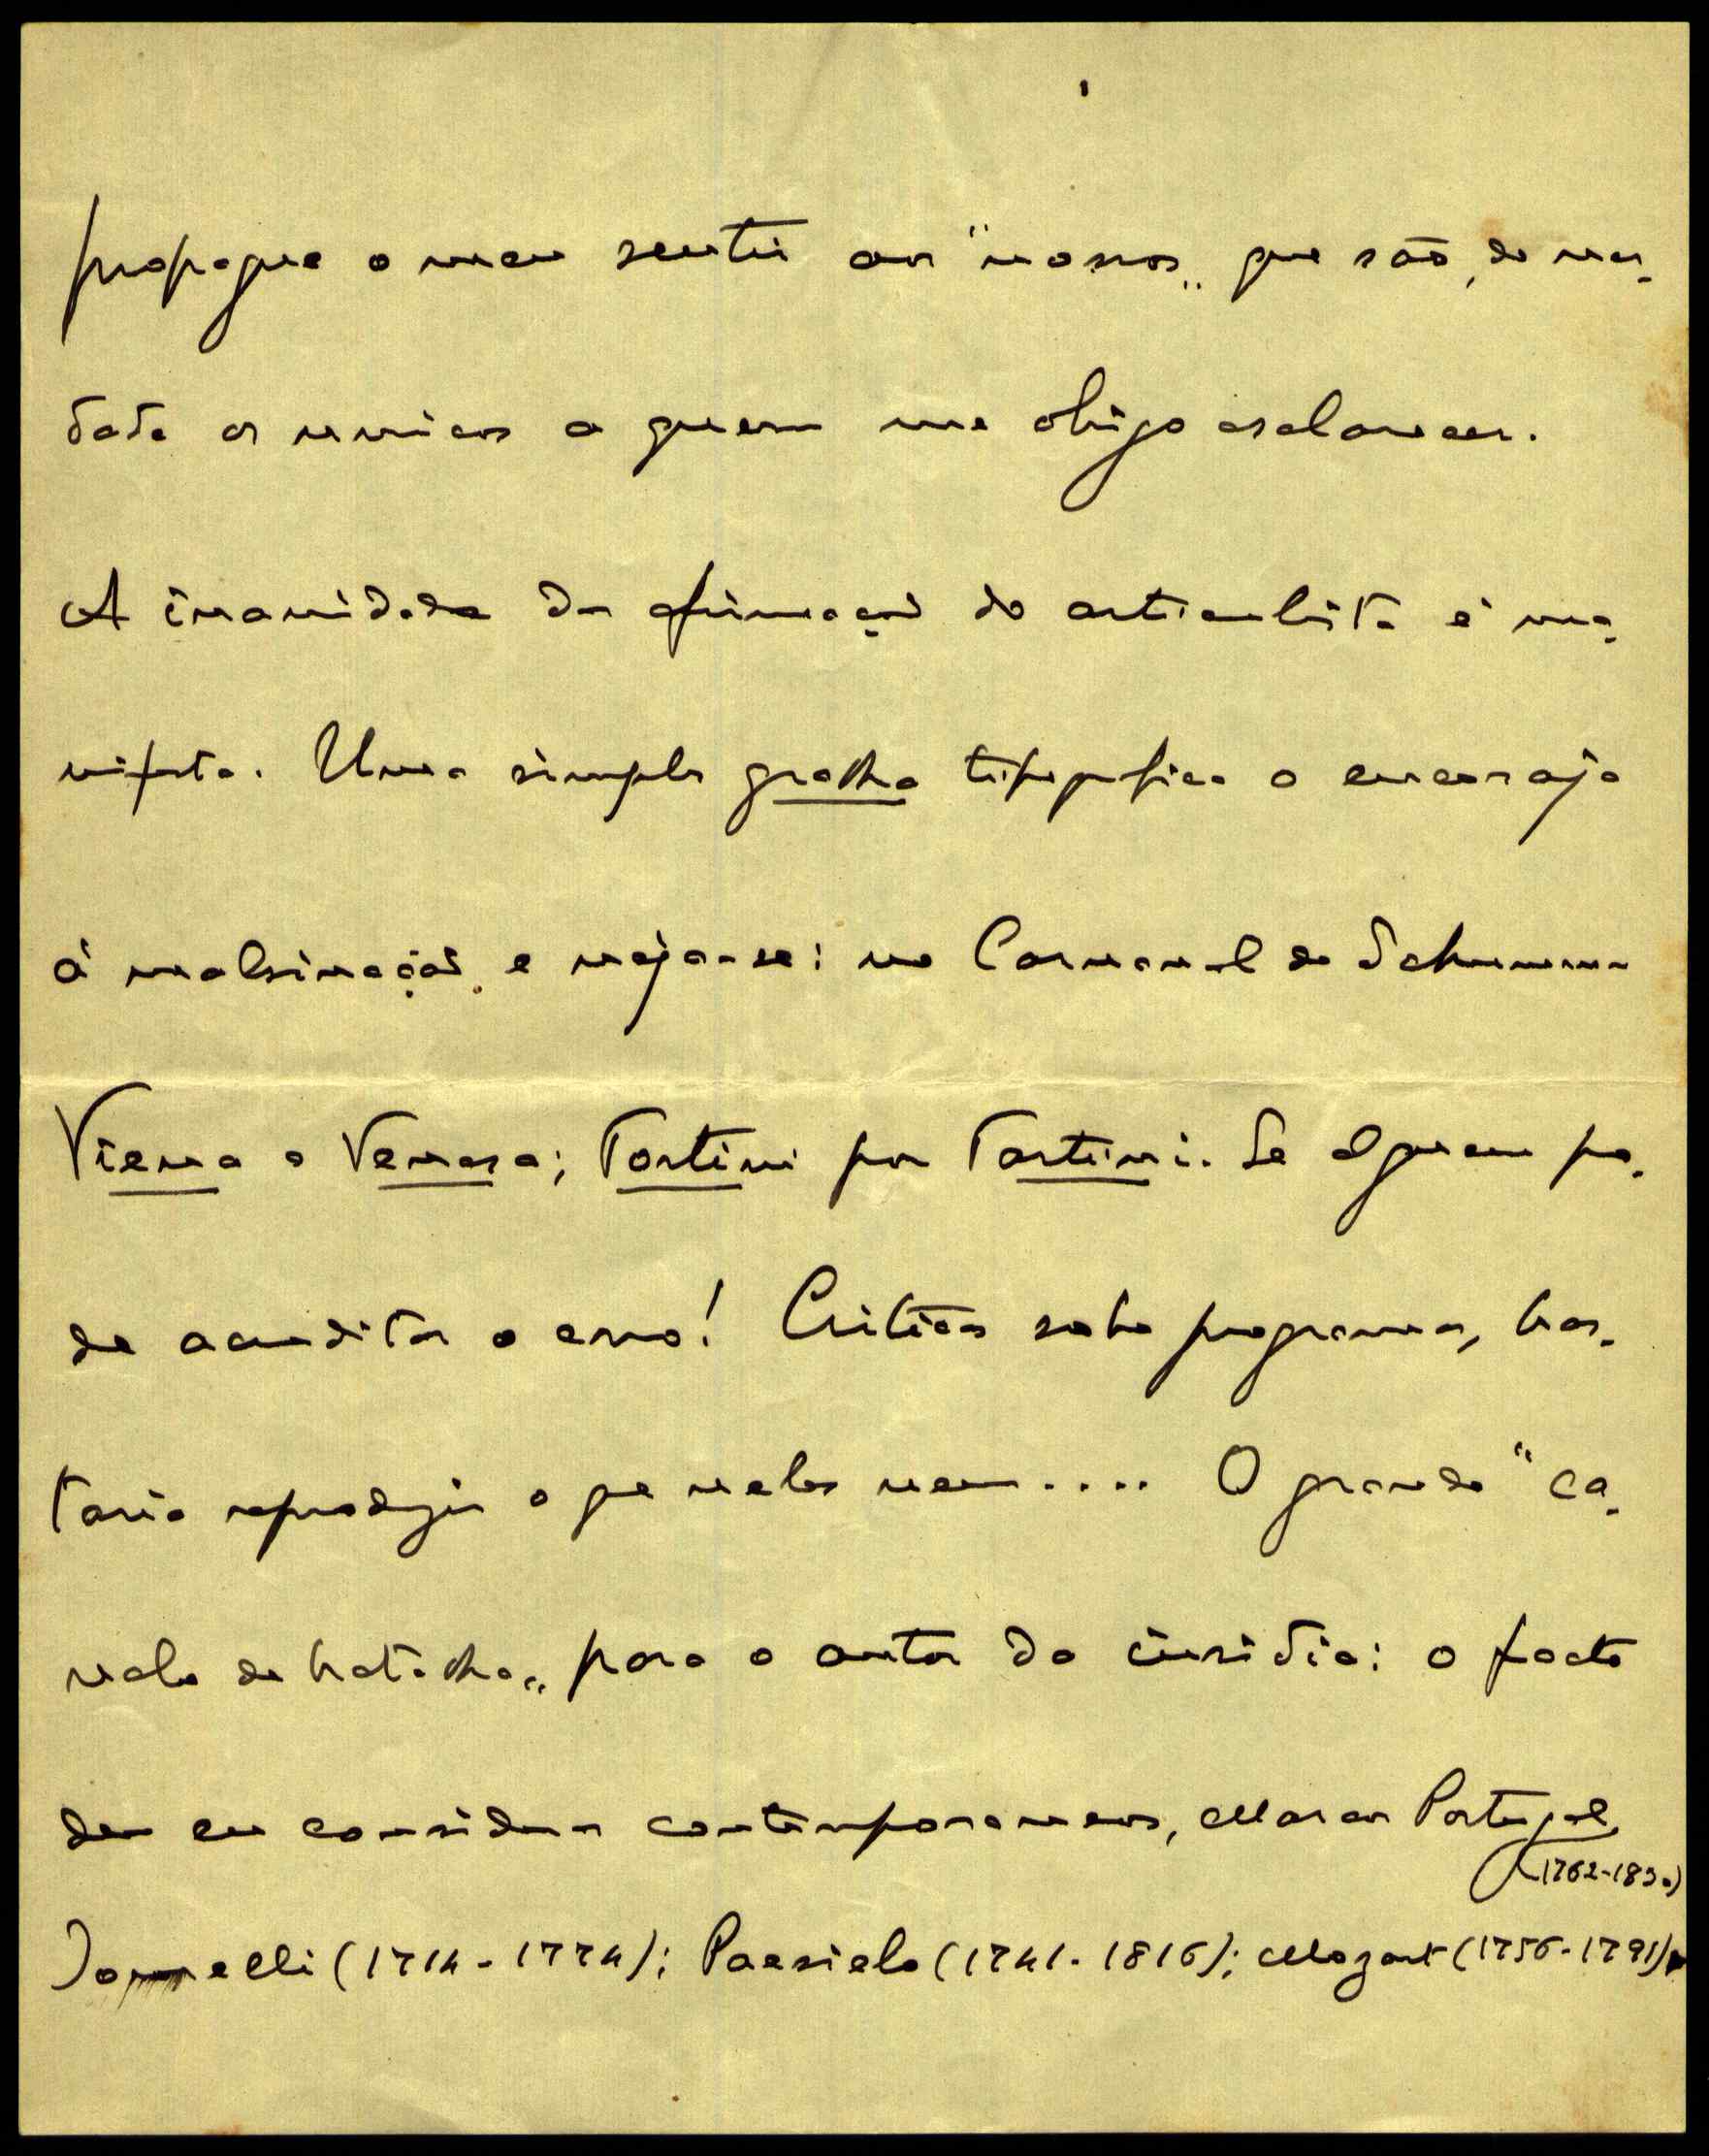 propague o meu sentir aos "nossos„ que são, de ver-
dade os unicos a quem me obrigo esclarecer.
A inanidade da afirmação do articulista é ma-
nifesta. Uma simples gralha tipografica o encoraja
á malsinação e veja-se: no Carnaval de Schumann
Viena o Veneza; Tortini por Tartini. Se alguem po-
de acreditar o erro! Criticas sobre programas, bas-
taria reproduzir o que neles vem.... O grande "ca-
valo de batalha„ para o autor da insidia: o facto
de eu considerar contemporaneos, Marcos Portugal
(1762-1830)
Jommelli (1714-1774); Paesielo (1741-1816); Mozart (1756-1791)